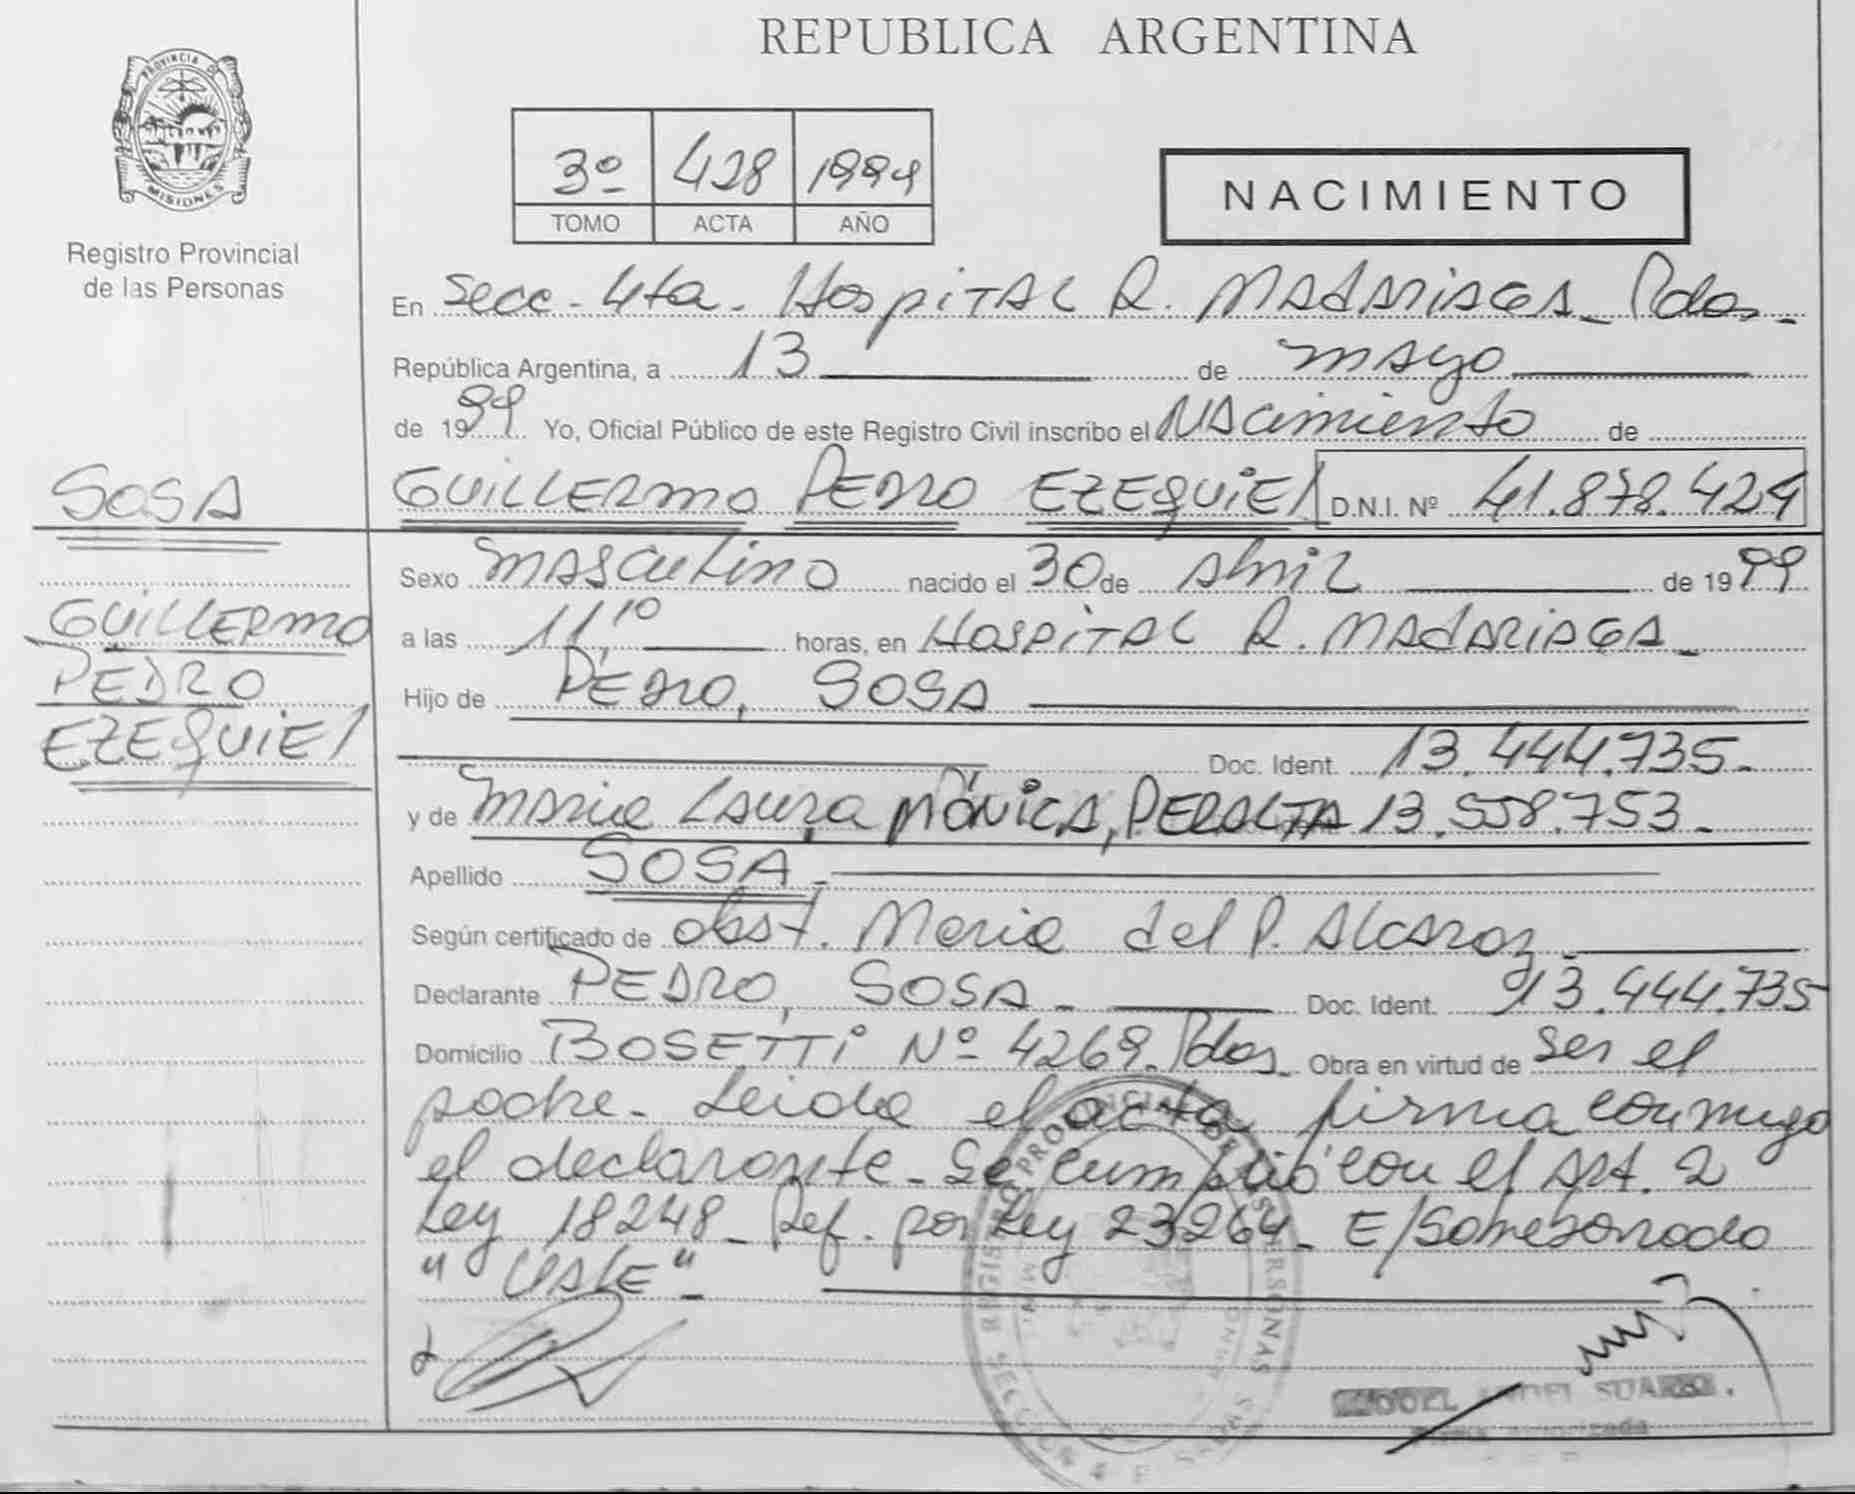 REPUBLICA ARGENTINA
PROVINCIA DE
MISIONES
Registro Provincial
de las Personas
3º 428 1999
TOMO ACTA AÑO
NACIMIENTO
En Secc. 4ta. Hospital R. Madariaga - Pdas.
República Argentina, a 13 de mayo
de 1999 Yo, Oficial Público de este Registro Civil inscribo el Nacimiento de
SOSA
GUILLERMO PEDRO EZEQUIEL D.N.I. Nº 41.878.424
Sexo masculino nacido el 30 de Abril de 1999
GUILLERMO
a las 11,10 horas, en Hospital R. Madariaga -
PEDRO
Hijo de PEDRO, SOSA
EZEQUIEL
Doc. Ident. 13.444.735.
y de Maria Laura MÓNICA, PERALTA 13.558.753.
Apellido SOSA.
Según certificado de obst. Maria del P. Alcaraz
Declarante PEDRO, SOSA - Doc. Ident. 13.444.735
Domicilio BOSETTI Nº 4269. Pdas. Obra en virtud de ser el
padre. Leida el acta, firma conmigo
el declarante. Se cumplió con el Art. 2
Ley 18248 - Ref. por Ley 23264 - E/Sobreborrado
"VALE" -
ANGEL SUAREZ.